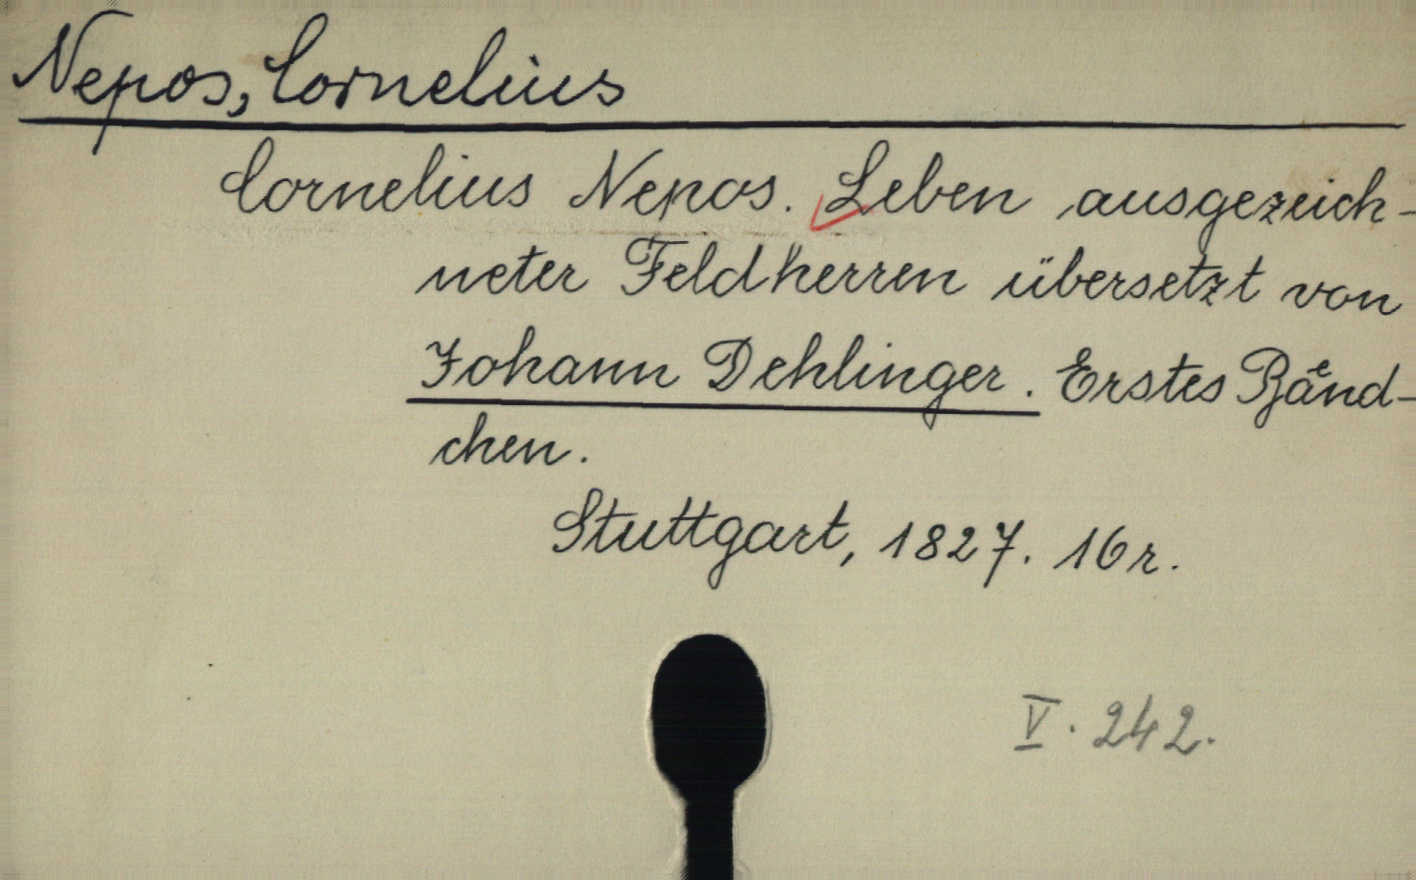 Nepos, Cornelius
Cornelius Nepos. Leben ausgezeich-
neter Feldherren übersetzt von
Johann Dehlinger. Erstes Baͤnd-
chen.
Stuttgart, 1827. 16 r.
V. 242.